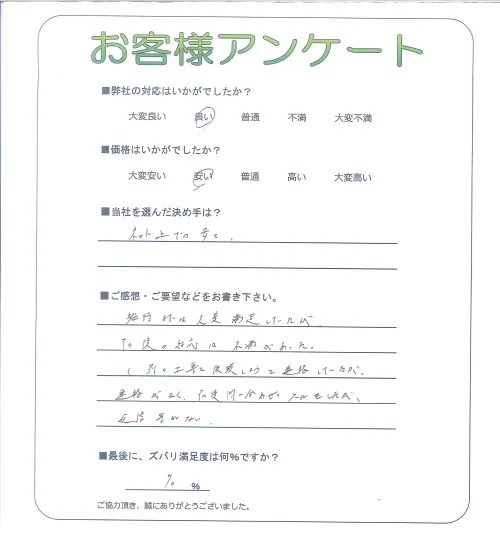 お客様アンケート
■弊社の対応はいかがでしたか？
大変良い 良い 普通 不満 大変不満
■価格はいかがでしたか？
大変安い 安い 普通 高い 大変高い
■当社を選んだ決め手は？
ネット上での
■ご感想・ご要望などをお書き下さい。
は大変満足していたが、
その後の対応は不満があった。
工事を依頼しようと連絡していたが、
連絡がなく、 メールをしたが、
返信がない。
■最後に、ズバリ満足度は何％ですか？
70 %
ご協力頂き、誠にありがとうございました。